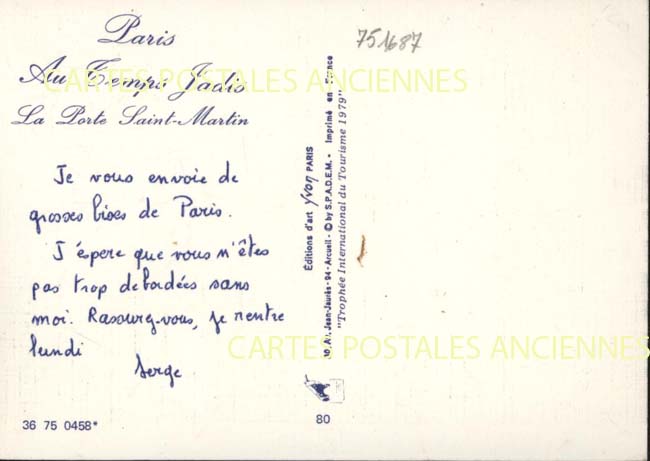 Paris
Au Temps Jadis
La Porte Saint-Martin
Je vous envoie de
grosses bises de Paris.
J'éspere que vous n'êtes
pas trop debordées sans
moi. Rassurez-vous, je rentre
lundi
Serge
36 75 0458*
Editions d'art yvon PARIS
10, Av. Jean-Jaurès - 94 - Arcueil - © by S.P.A.D.E.M. - Imprimé en France
"Trophée International du Tourisme 1979"
80
751687
CARTES POSTALES ANCIENNES
CARTES POSTALES ANCIENNES